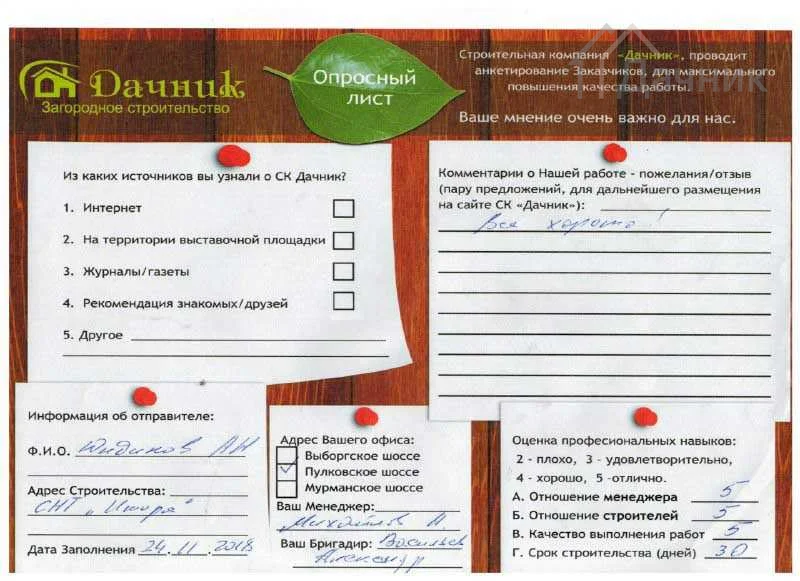 Дачник
Загородное строительство
Опросный
лист
Строительная компания «Дачник», проводит
анкетирование Заказчиков, для максимального
повышения качества работы.
Ваше мнение очень важно для нас.
Из каких источников вы узнали о СК Дачник?
1. Интернет
2. На территории выставочной площадки
3. Журналы/газеты
4. Рекомендация знакомых/друзей
5. Другое
Комментарии о Нашей работе - пожелания/отзыв
(пару предложений, для дальнейшего размещения
на сайте СК «Дачник»):
Все хорошо!
Информация об отправителе:
Ф.И.О. АН
Адрес Строительства:
СНТ „Ижора"
Дата Заполнения 24.11.2018
Адрес Вашего офиса:
Выборгское шоссе
Пулковское шоссе
Мурманское шоссе
Ваш Менеджер:
Михайлов Н.
Ваш Бригадир: Васильев
Александр
Оценка професиональных навыков:
2 - плохо, 3 - удовлетворительно,
4 - хорошо, 5 -отлично.
А. Отношение менеджера 5
Б. Отношение строителей 5
В. Качество выполнения работ 5
Г. Срок строительства (дней) 30